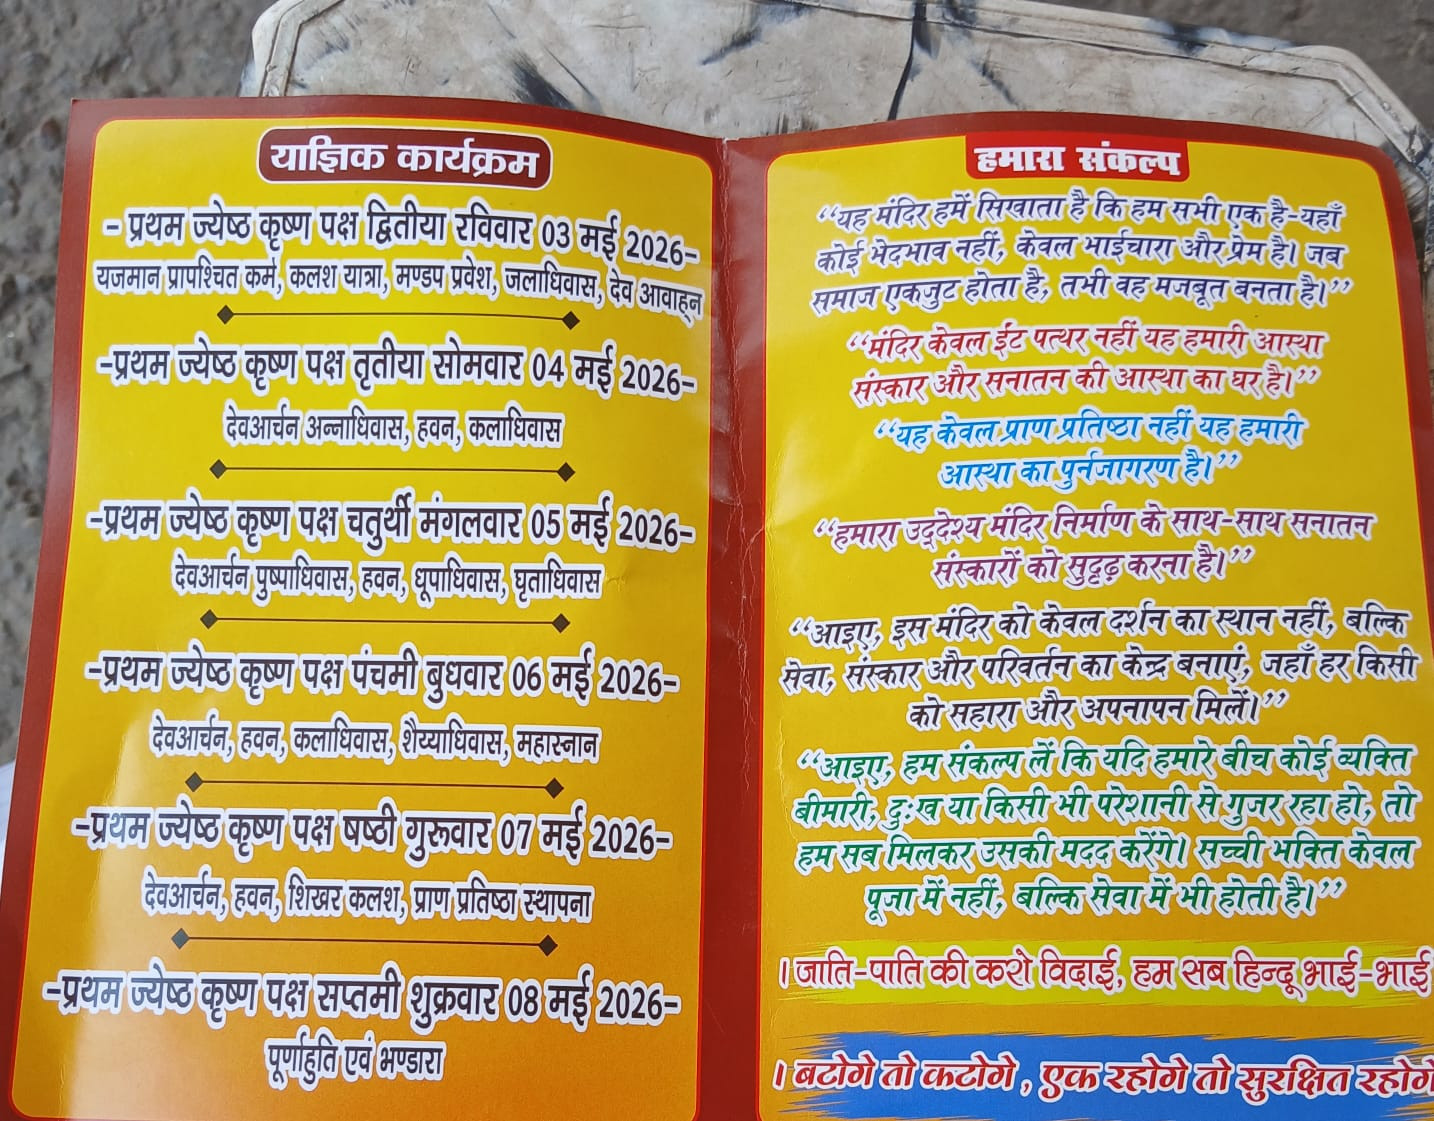 याज्ञिक कार्यक्रम
- प्रथम ज्येष्ठ कृष्ण पक्ष द्वितीया रविवार 03 मई 2026-
यजमान प्रापश्चित कर्म, कलश यात्रा, मण्डप प्रवेश, जलाधिवास, देव आवाह्न
-प्रथम ज्येष्ठ कृष्ण पक्ष तृतीया सोमवार 04 मई 2026-
देवआर्चन अन्नाधिवास, हवन, कलाधिवास
-प्रथम ज्येष्ठ कृष्ण पक्ष चतुर्थी मंगलवार 05 मई 2026-
देवआर्चन पुष्पाधिवास, हवन, धूपाधिवास, घृताधिवास
-प्रथम ज्येष्ठ कृष्ण पक्ष पंचमी बुधवार 06 मई 2026-
देवआर्चन, हवन, कलाधिवास, शैय्याधिवास, महास्नान
-प्रथम ज्येष्ठ कृष्ण पक्ष षष्ठी गुरूवार 07 मई 2026-
देवआर्चन, हवन, शिखर कलश, प्राण प्रतिष्ठा स्थापना
-प्रथम ज्येष्ठ कृष्ण पक्ष सप्तमी शुक्रवार 08 मई 2026-
पूर्णाहुति एवं भण्डारा
हमारा संकल्प
“यह मंदिर हमें सिखाता है कि हम सभी एक है-यहाँ
कोई भेदभाव नहीं, केवल भाईचारा और प्रेम है। जब
समाज एकजुट होता है, तभी वह मजबूत बनता है।”
“मंदिर केवल ईंट पत्थर नहीं यह हमारी आस्था
संस्कार और सनातन की आस्था का घर है।”
“यह केवल प्राण प्रतिष्ठा नहीं यह हमारी
आस्था का पुर्नजागरण है।”
“हमारा उद्देश्य मंदिर निर्माण के साथ-साथ सनातन
संस्कारों को सुदृढ़ करना है।”
“आइए, इस मंदिर को केवल दर्शन का स्थान नहीं, बल्कि
सेवा, संस्कार और परिवर्तन का केन्द्र बनाएं, जहाँ हर किसी
को सहारा और अपनापन मिलें।”
“आइए, हम संकल्प लें कि यदि हमारे बीच कोई व्यक्ति
बीमारी, दुःख या किसी भी परेशानी से गुजर रहा हो, तो
हम सब मिलकर उसकी मदद करेंगे। सच्ची भक्ति केवल
पूजा में नहीं, बल्कि सेवा में भी होती है।”
। जाति-पाति की करो विदाई, हम सब हिन्दू भाई-भाई
। बटोगे तो कटोगे , एक रहोगे तो सुरक्षित रहोगे